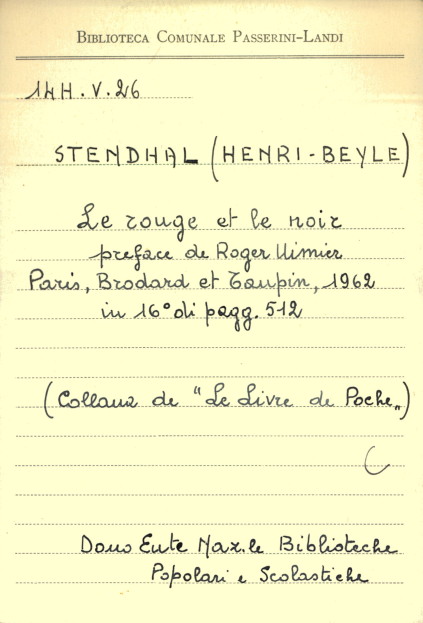 BIBLIOTECA COMUNALE PASSERINI-LANDI
14H.V.26
STENDHAL (HENRI-BEYLE)
Le rouge et le noir
preface de Roger Nimier
Paris, Brodard et Taupin, 1962
in 16° di pagg. 512
(Collana de "Le Livre de Poche")
C
Dono Ente Naz.le Biblioteche
Popolari e Scolastiche